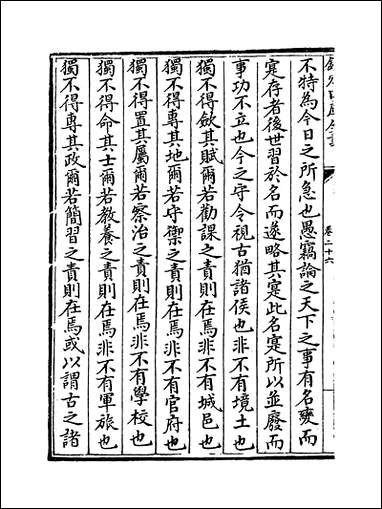 欽定四庫全書
不特為今日之所急也愚竊論之天下之事有名變而
寔存者後世習於名而遂略其寔此名寔所以並廢而
事功不立也今之守令視古猶諸侯也非不有境土也
獨不得斂其賦爾若勸課之責則在焉非不有城邑也
獨不得專其地爾若守禦之責則在焉非不有官府也
獨不得置其屬爾若察治之責則在焉非不有學校也
獨不得命其士爾若教養之責則在焉非不有軍旅也
獨不得專其政爾若簡習之責則在焉或以謂古之諸